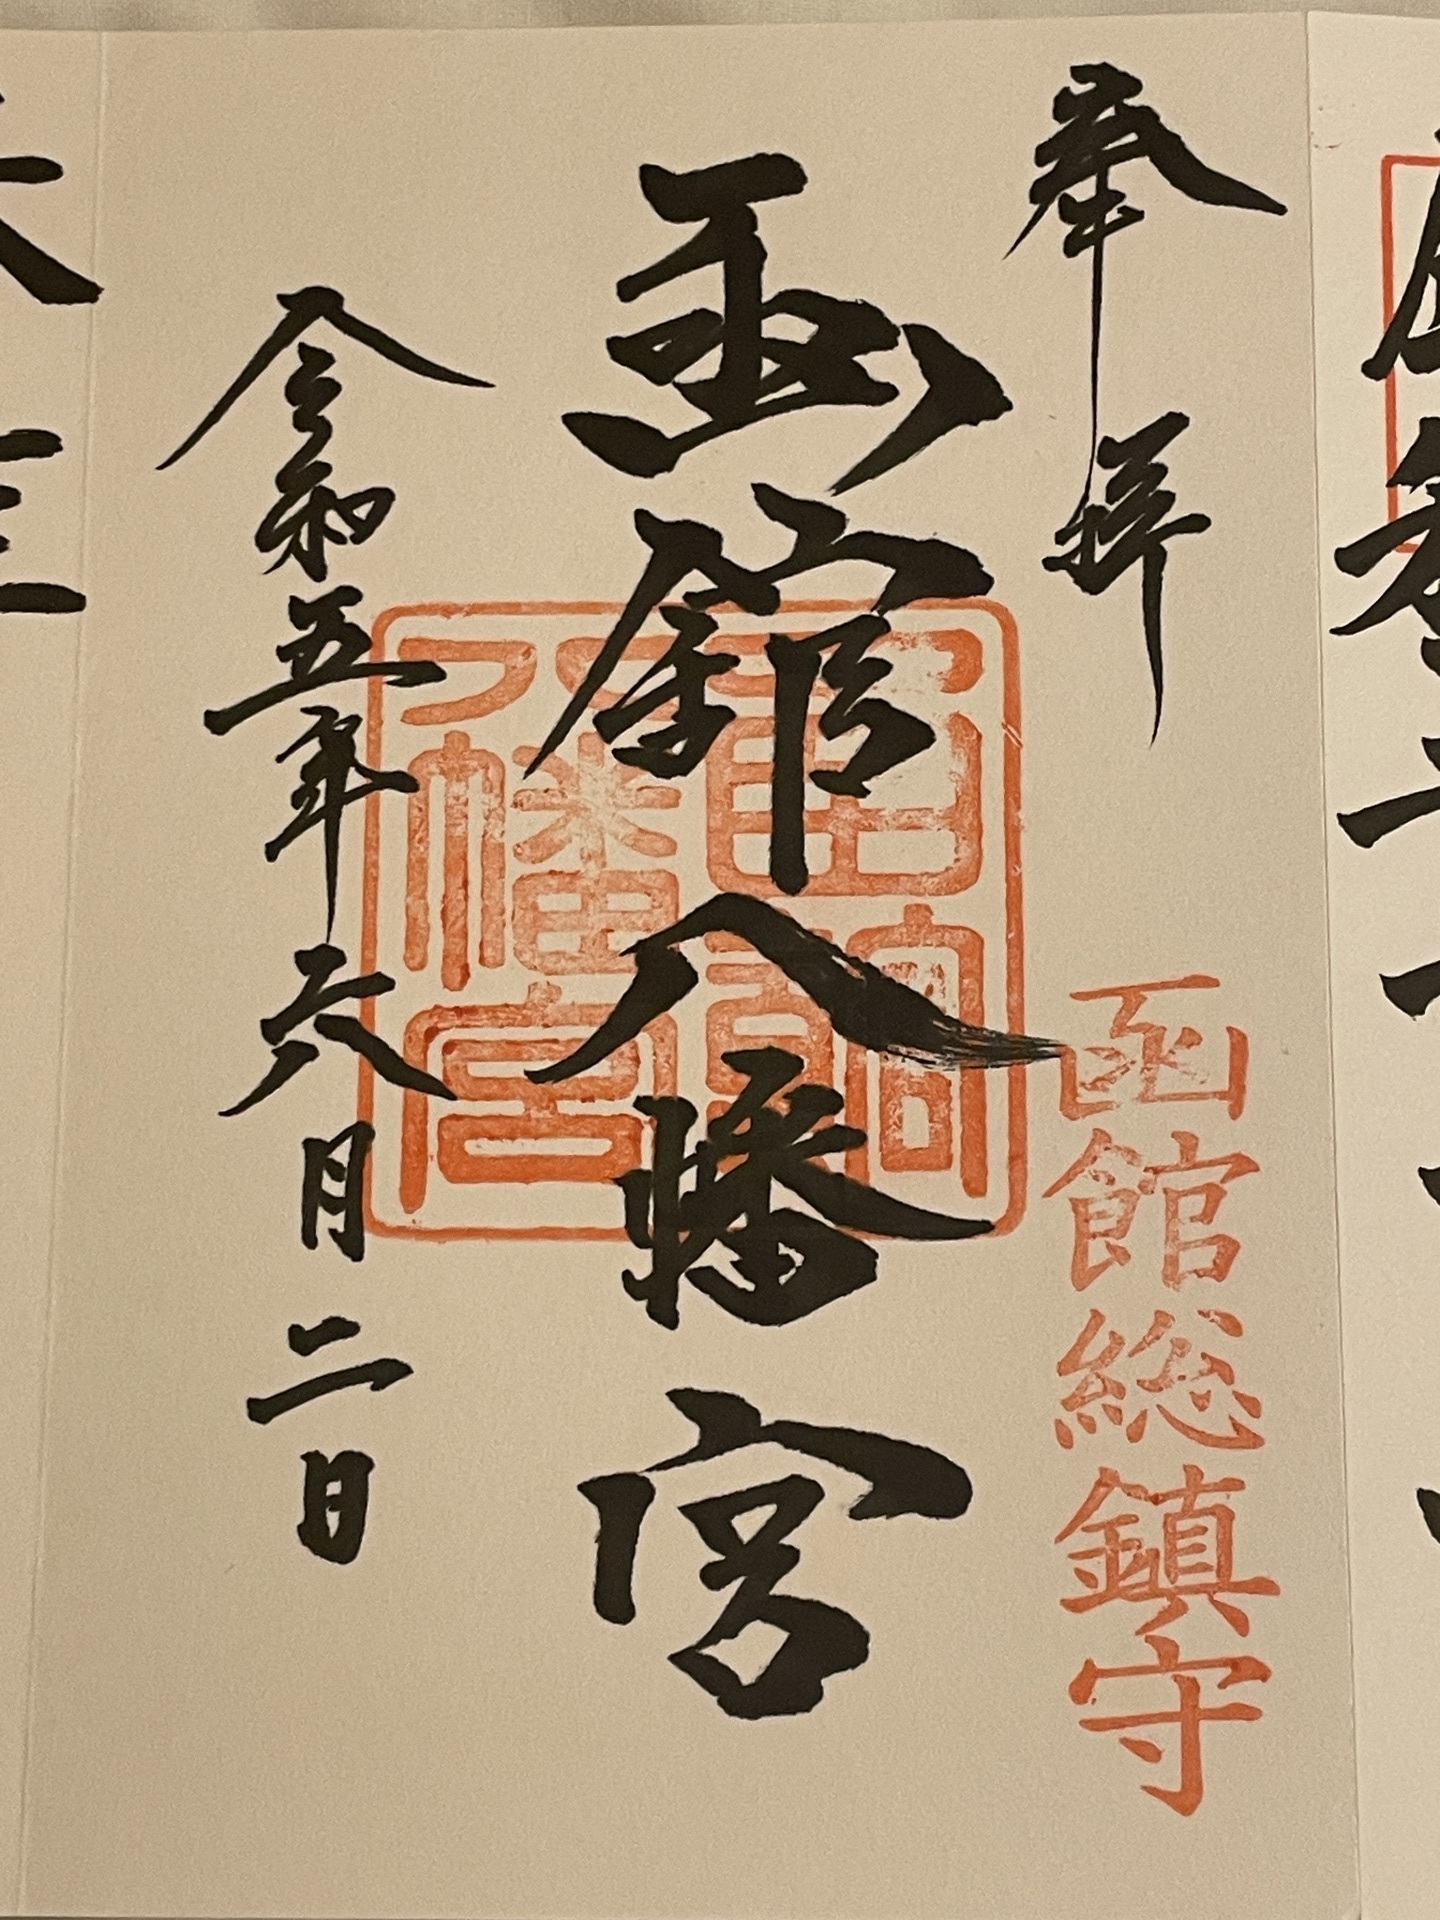 奉拝
函館総鎮守
函館八幡宮
函館八幡宮
令和五年六月二日